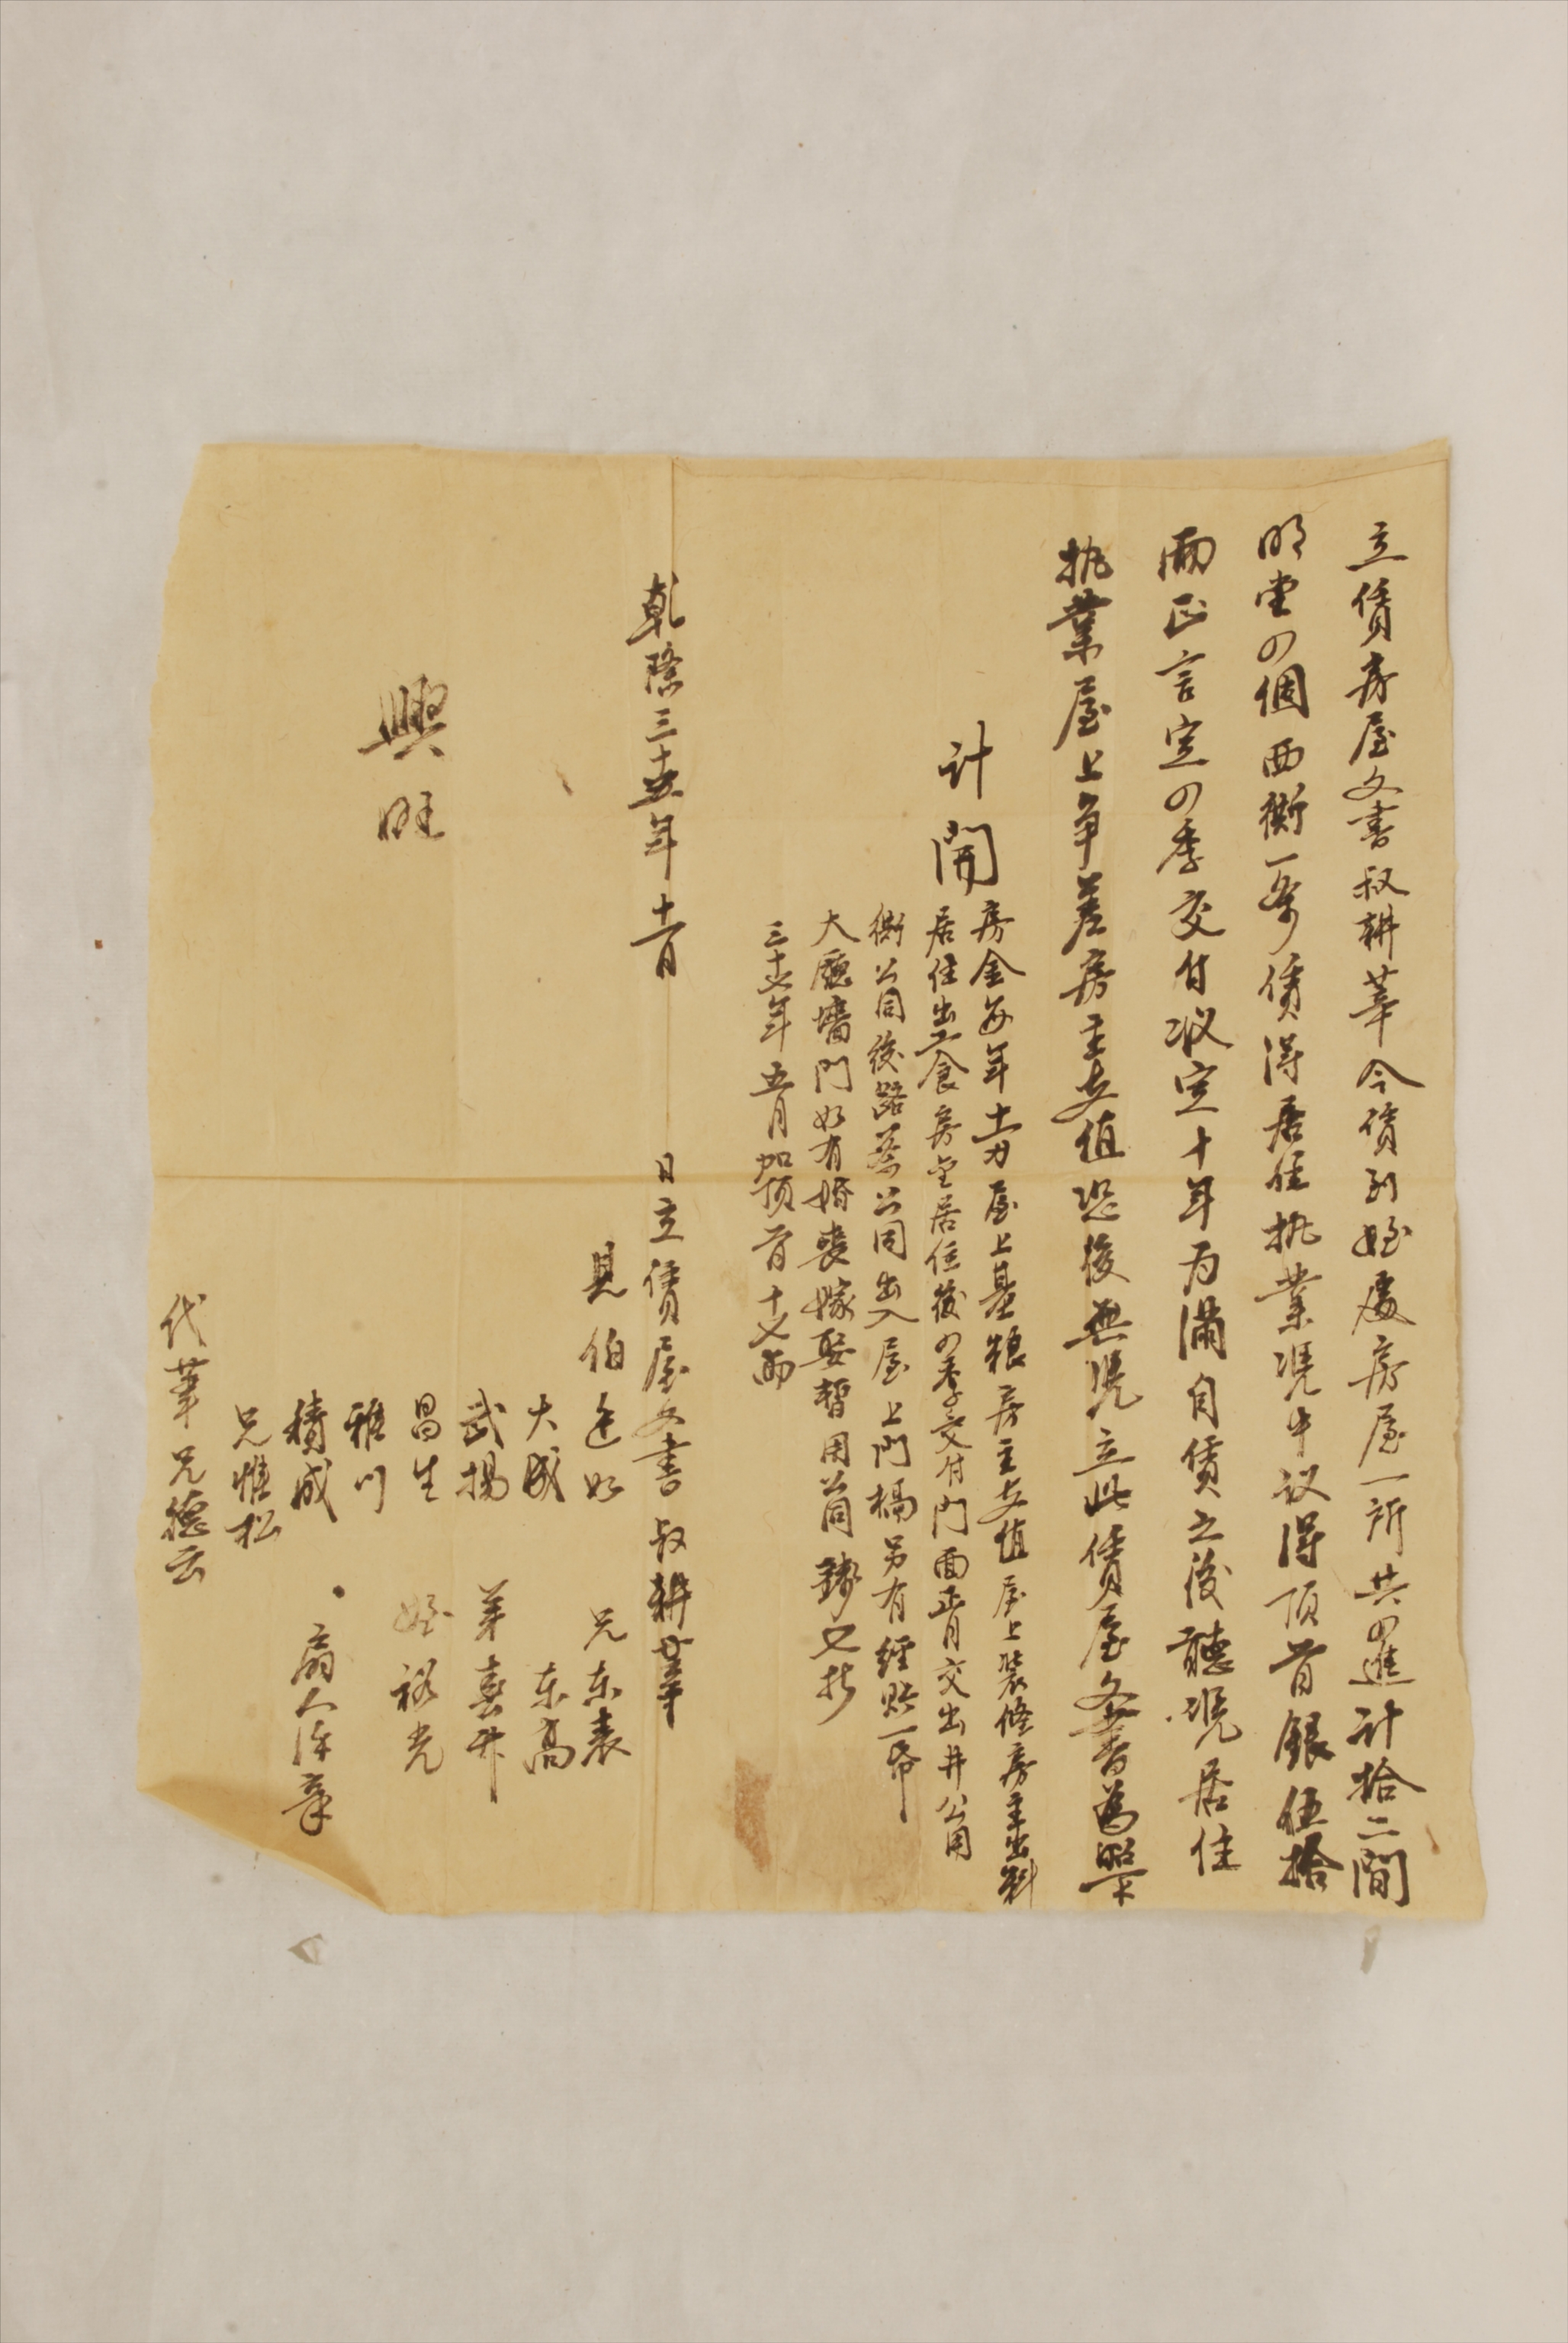 立賃房屋文書叔耕莘今賃到姪處房屋一所共四進計拾二間
明堂四個西衖一条賃得居住执業凴中议得頂首銀伍拾
兩正言定四季交付议定十年为滿自賃之後聽凴居住
执業屋上争差房主支值恐後無凴立此賃屋文書為照
計開
房金每年 屋上基粮房主支值屋上装修房主出料
居住出工食房金居住後四季交付門面 交出井公用
衖公同後路 公同出入屋上門槅另有經賬一帋
大廳墻門如有婚喪嫁娶暫用公同
三十七年五月加頂首十七两
乾隆三十五年十一月 日立賃屋文書叔耕莘
見伯 如 兄东表
大成 东高
武揚 弟嘉升
昌生 姪裕光
雅川
積成
兄惟松
代筆兄德云
興旺